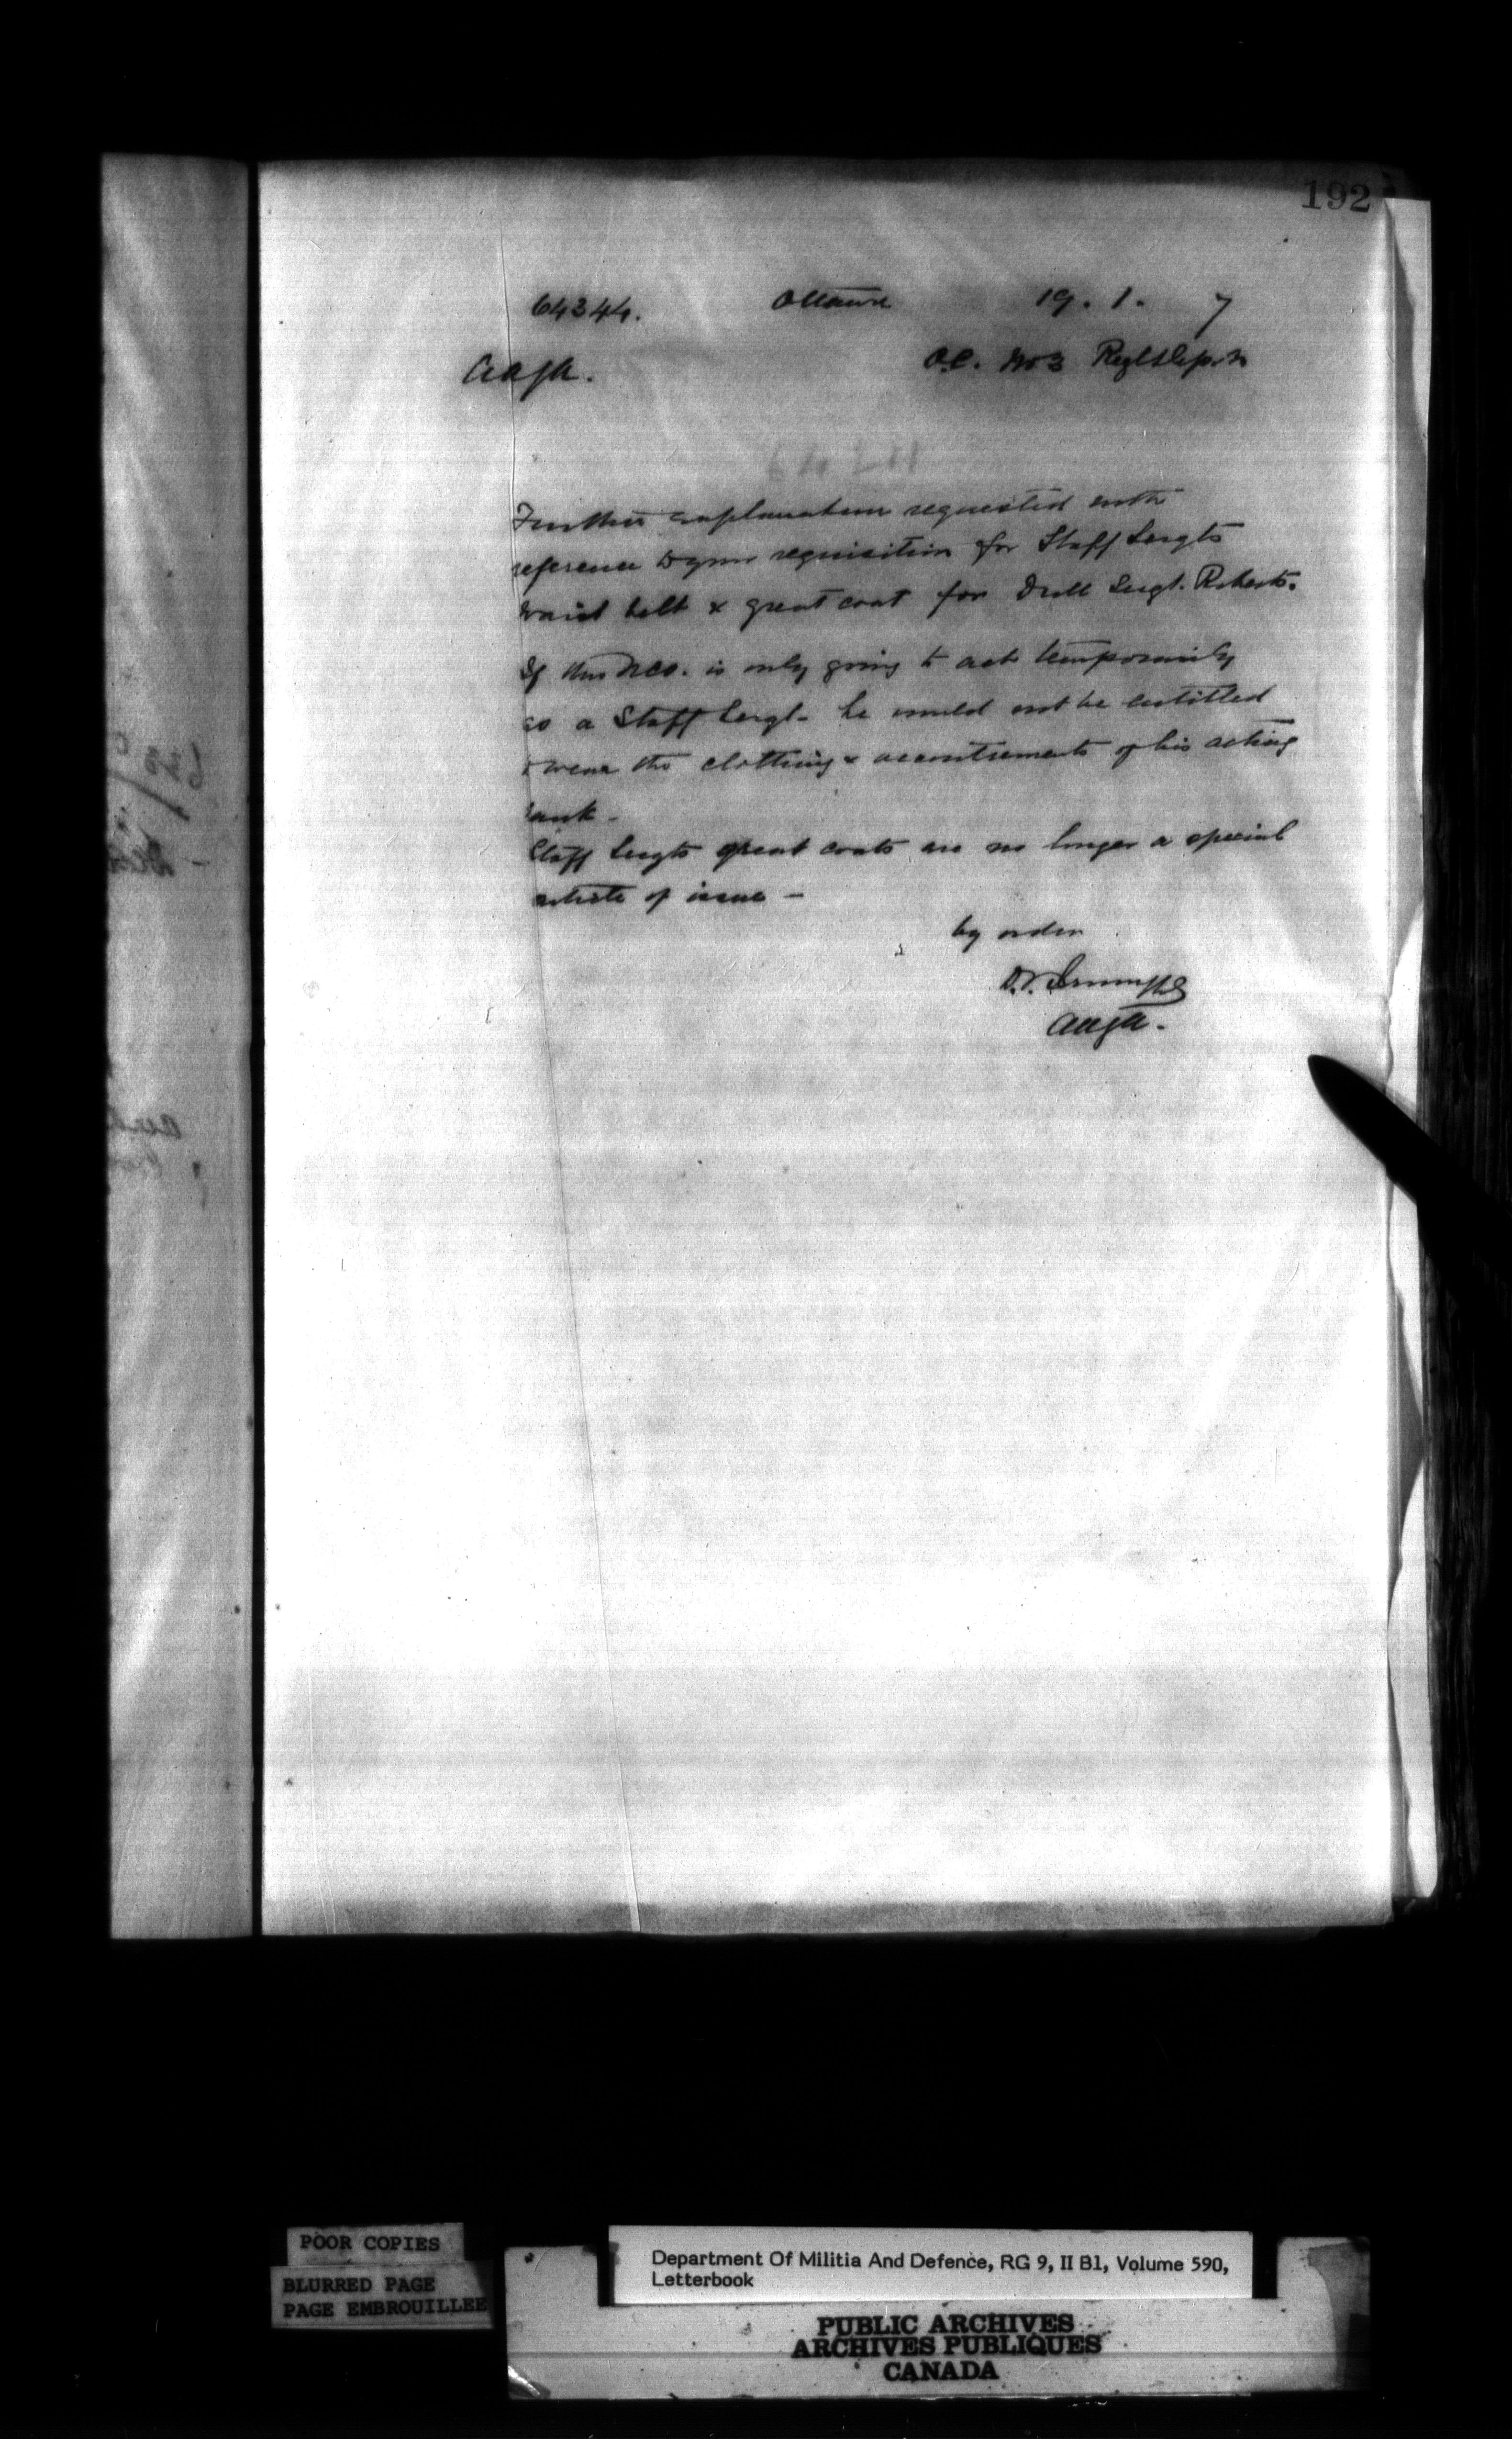 192
64344. Ottawa 19. 1. 7
AAGA. O.C. No 3 Regtl Depot
Further explanation requested with
reference to your requisition for Staff Sergts
waist belt & great coat for Drill Sergt. Roberts.
If this NCO. is only going to act temporarily
as a Staff Sergt. he would not be entitled
to wear the clothing & accoutrements of his acting
rank -
Staff Sergts great coats are no longer a special
article of issue -
by order
AAGA.
POOR COPIES
BLURRED PAGE
PAGE EMBROUILLEE
Department Of Militia And Defence, RG 9, II B1, Volume 590,
Letterbook
PUBLIC ARCHIVES
ARCHIVES PUBLIQUES
CANADA